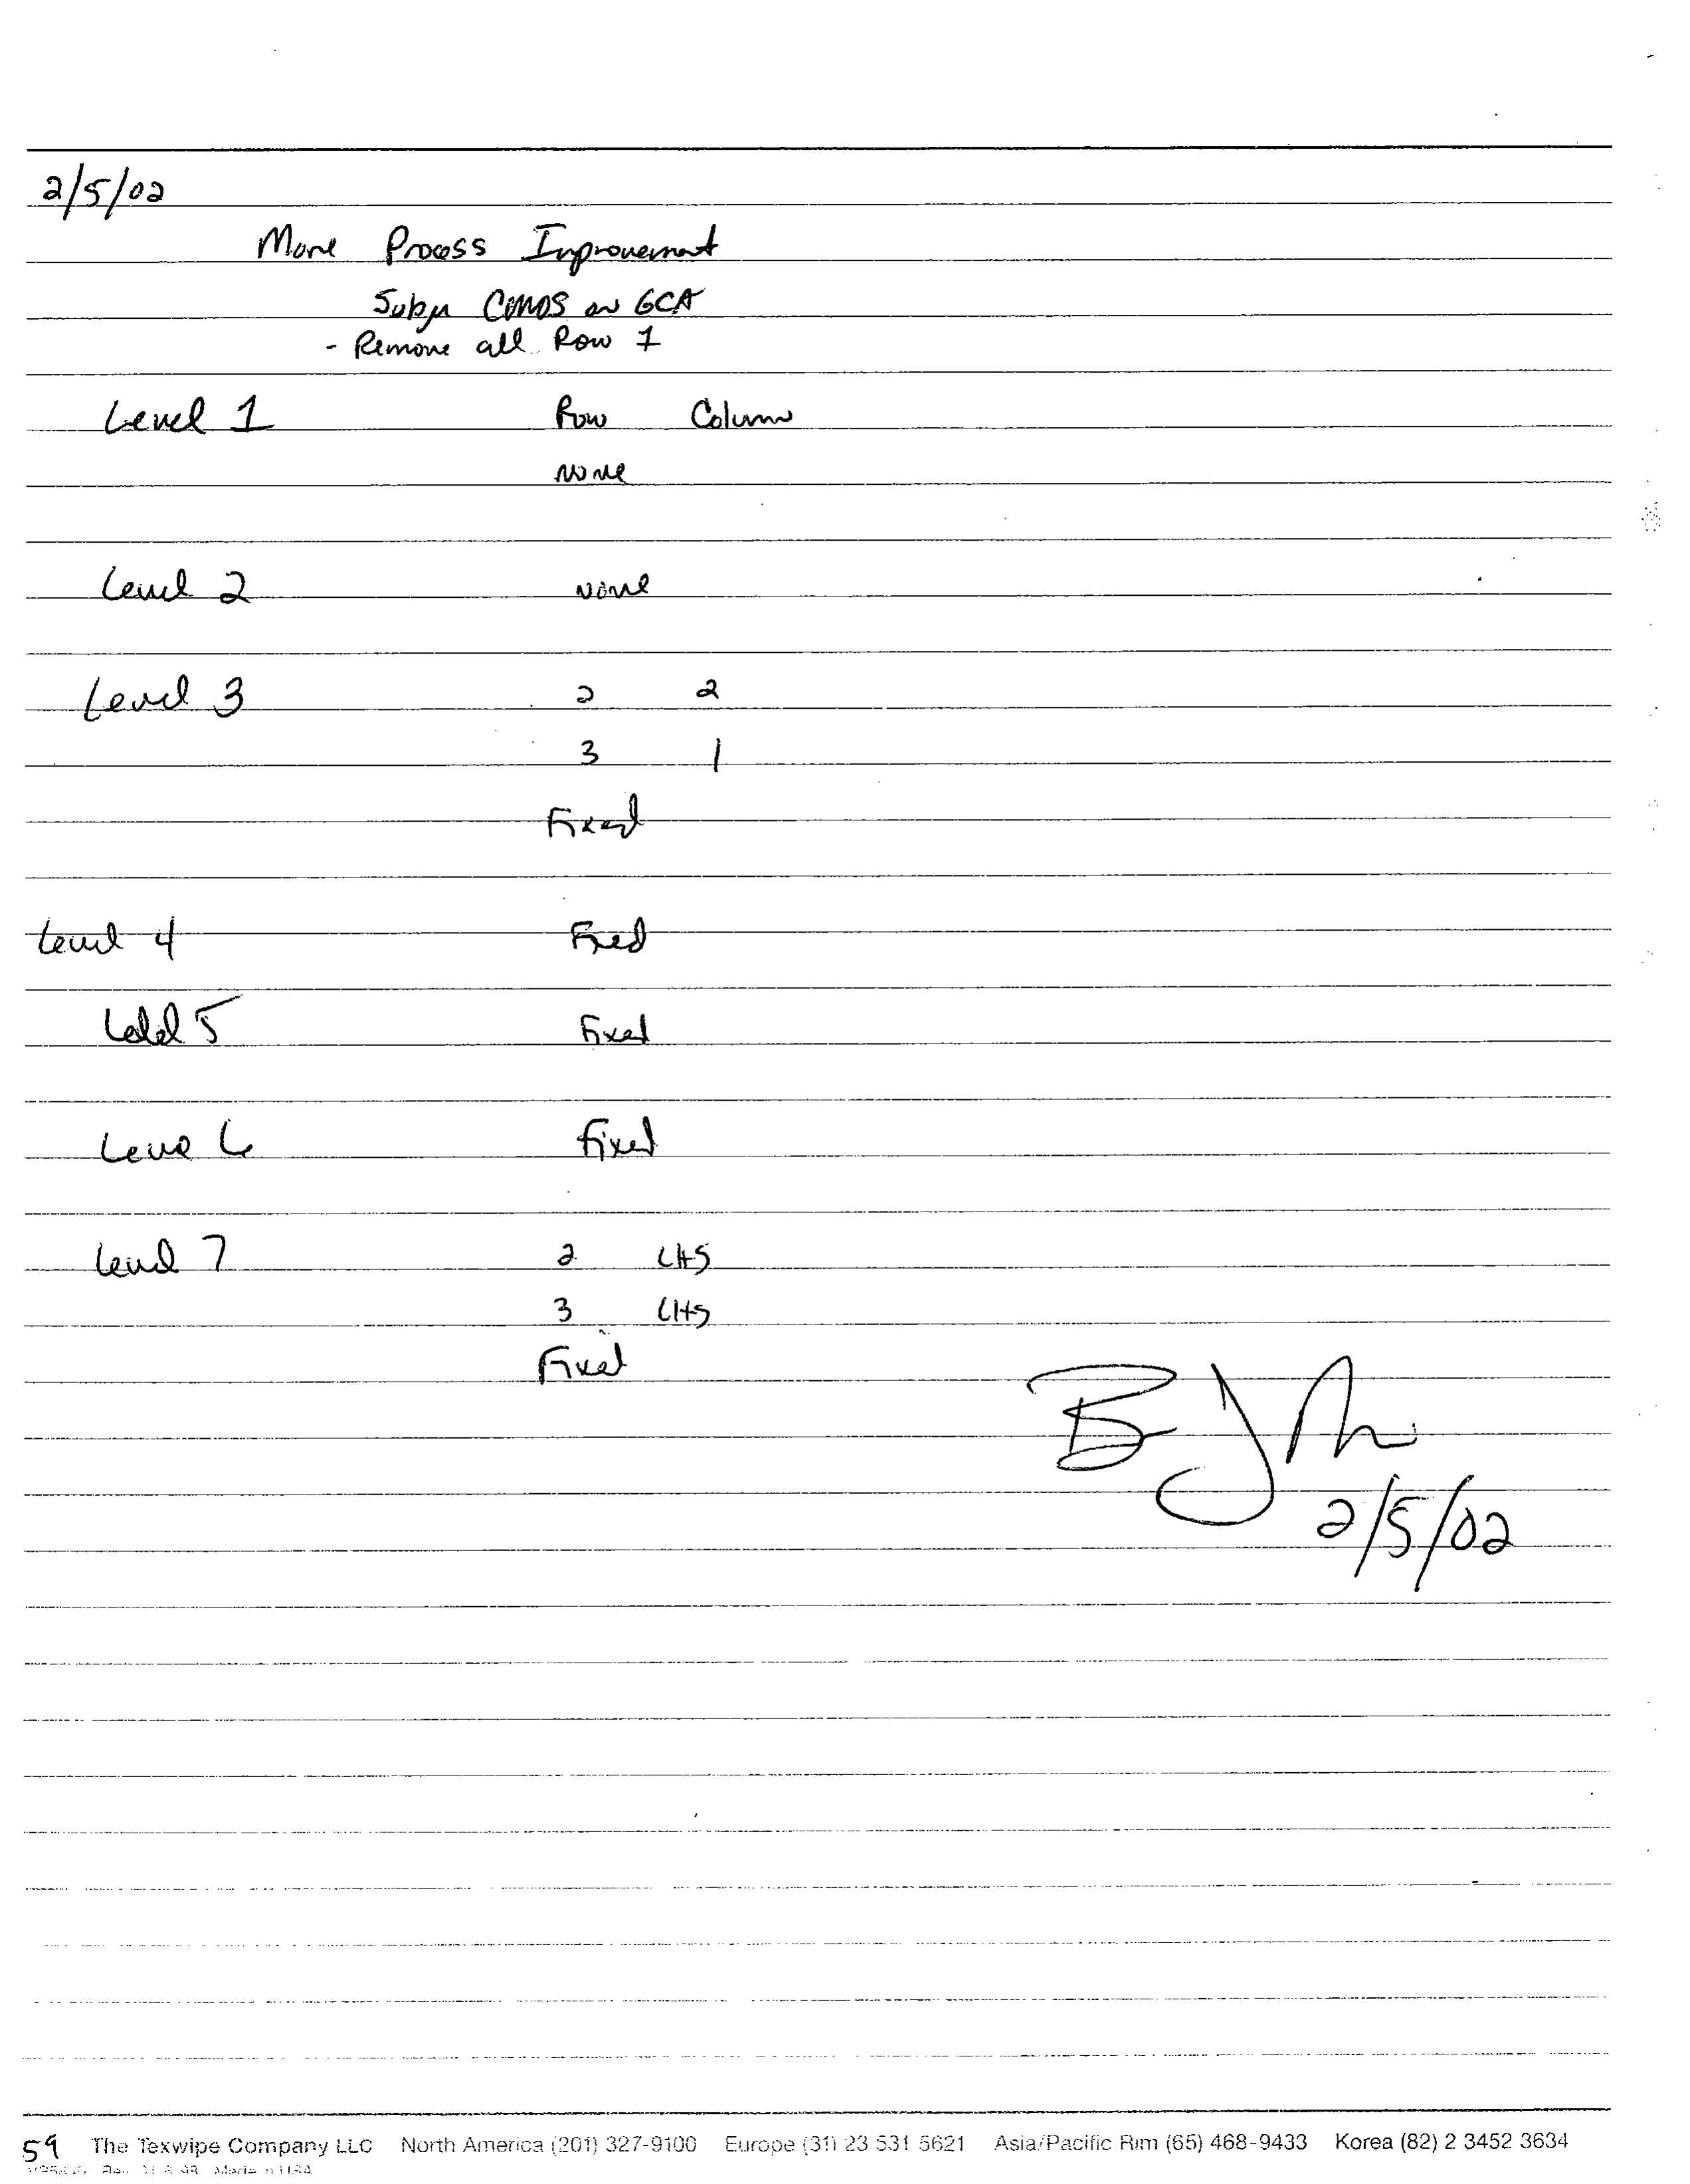 2/5/02
More Process Improvement
Subμ CMOS on GCA
- Remove all Row 1
Level 1 Row Column
None
Level 2 None
Level 3 2 2
3 1
Fixed
Level 4 Fixed
Level 5 Fixed
Level 6 Fixed
Level 7 2 LHS
3 LHS
Fixed
2/5/02
59 The Texwipe Company LLC North America (201) 327-9100 Europe (31) 23 531 5621 Asia/Pacific Rim (65) 468-9433 Korea (82) 2 3452 3634
Made in USA